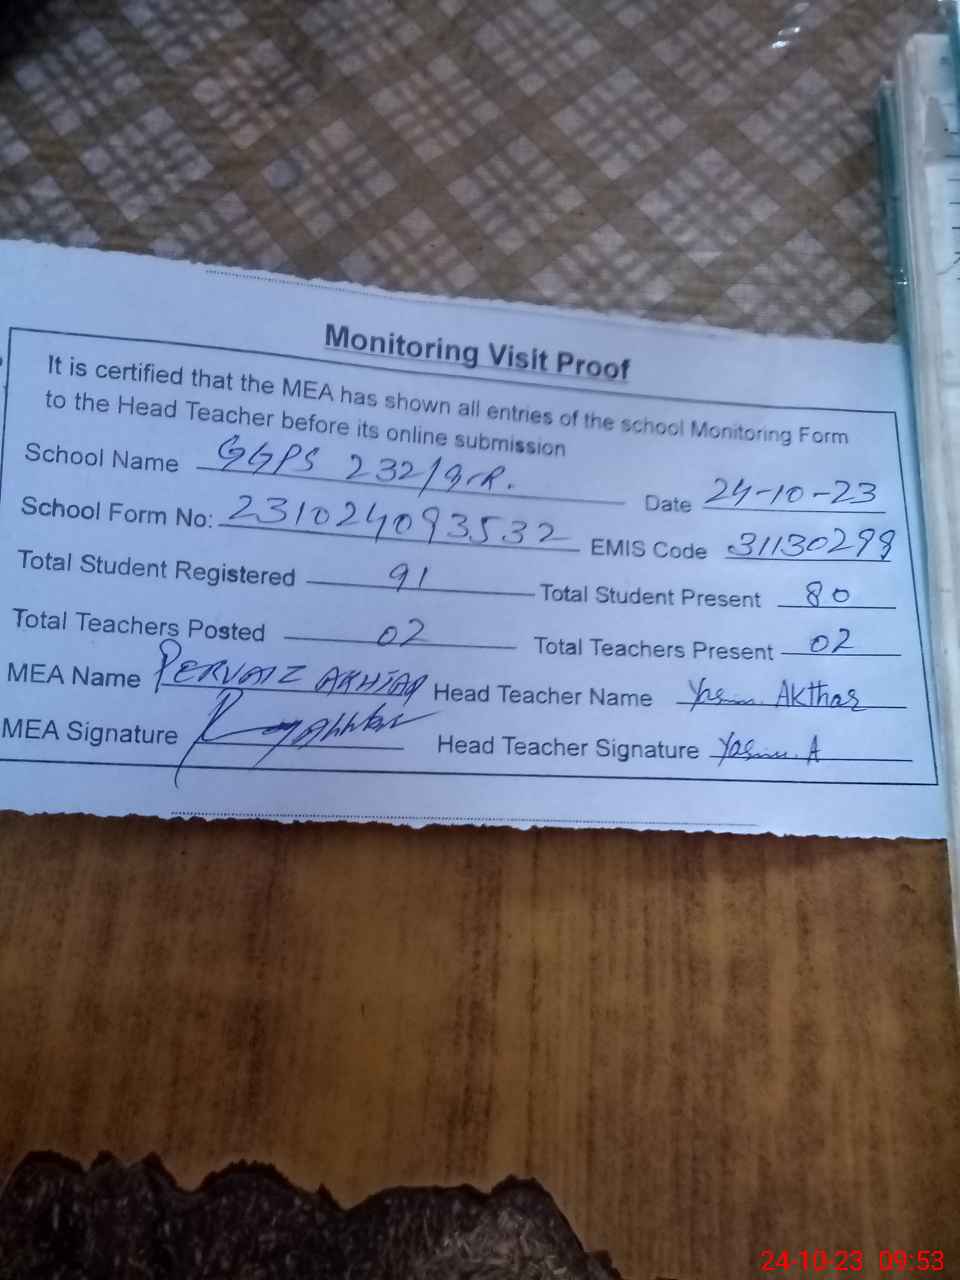 Monitoring Visit Proof
It is certified that the MEA has shown all entries of the school Monitoring Form
to the Head Teacher before its online submission
School Name GGPS 232/9-R. Date 24-10-23
School Form No: 231024093532 EMIS Code 31130299
Total Student Registered 91 Total Student Present 80
Total Teachers Posted 02 Total Teachers Present 02
MEA Name PERVAIZ AKHTAR Head Teacher Name Akthar
MEA Signature Head Teacher Signature
24-10-23 09:53